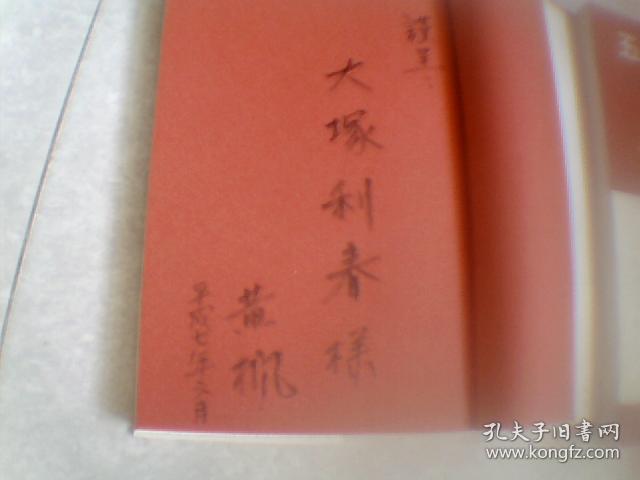 謹呈
大塚利春様
黄枫
平成七年二月
王
孔夫子旧书网
www.kongfz.com